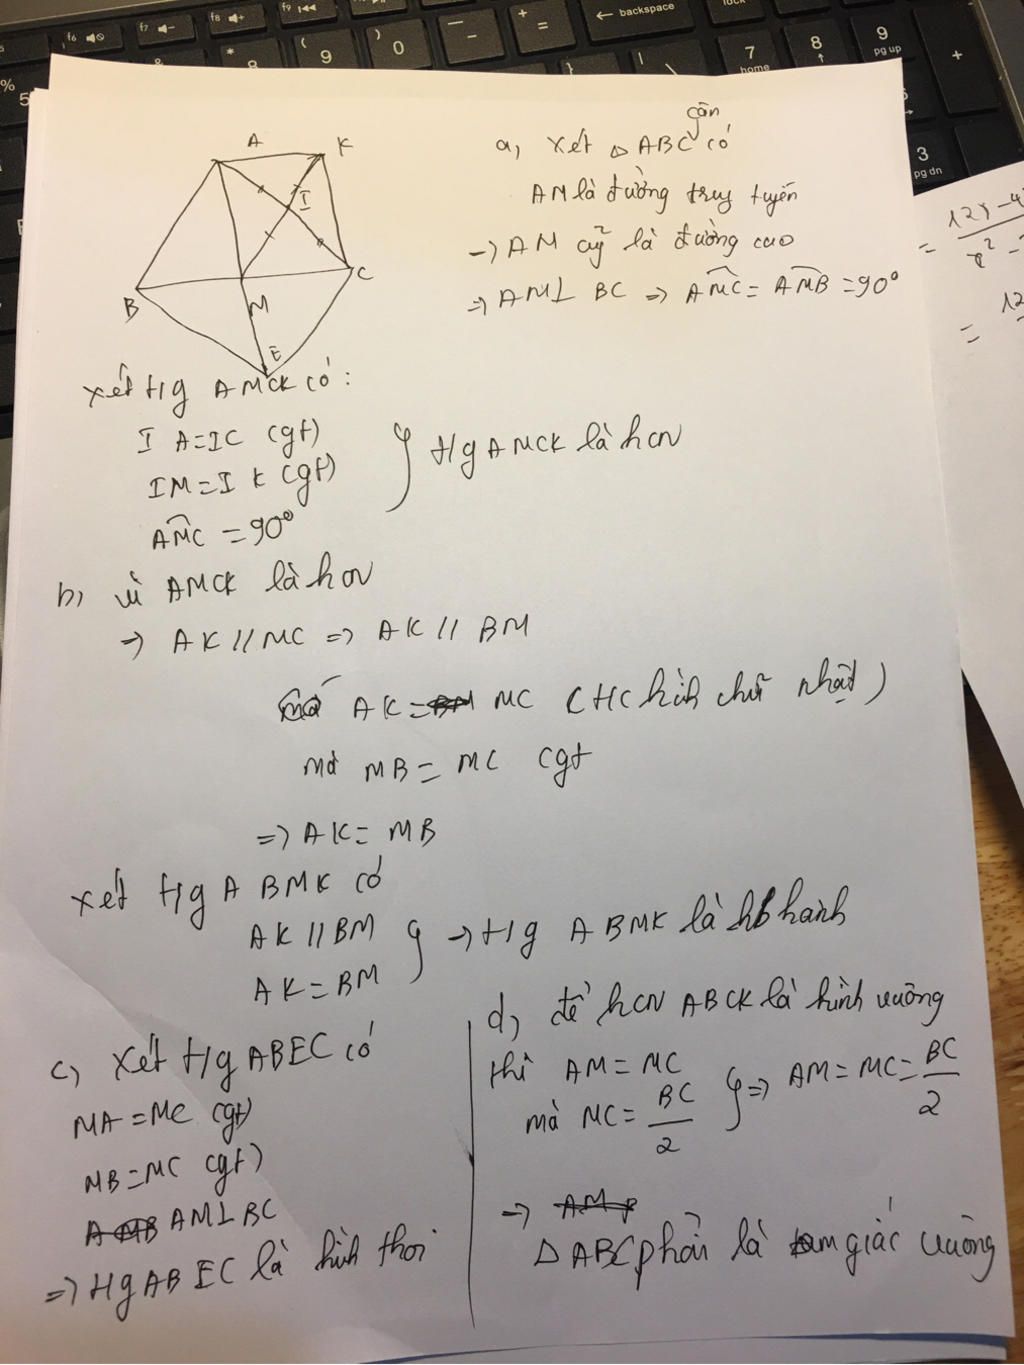 f6
f7
f8
f9
backspace
lock
%
5
*
8
(
9
)
0
_
-
+
=
}
|
\
7
home
8
9
pg up
+
3
pg dn
A
K
I
B
C
M
E
a, xét △ABC cân có
AM là đường trug tuyến
→ AM cũg là đường cao
⇒ AM⊥ BC ⇒ AMC = AMB = 90°
xét t/g AMCK có:
IA=IC (gt)
IM=IK (gt)
} t/g AMCK là hcn
AMC = 90°
b, vì AMCK là hcn
⇒ AK // MC ⇒ AK // BM
mà AK = BM MC (t/c hình chữ nhật)
mà MB = MC (gt
⇒ AK = MB
xét t/g ABMK có
AK // BM
AK = BM
} → t/g ABMK là hb hành
c, xét t/g ABEC có
MA = ME (gt)
MB = MC (gt)
AMB AM⊥BC
⇒ t/g ABEC là hình thoi
d, để hcn ABCK là hình vuông
thì AM = MC
mà MC = BC/2
} ⇒ AM = MC = BC/2
⇒ AM
△ABC phải là tam giác vuông
= 12x-4
x²
= 12